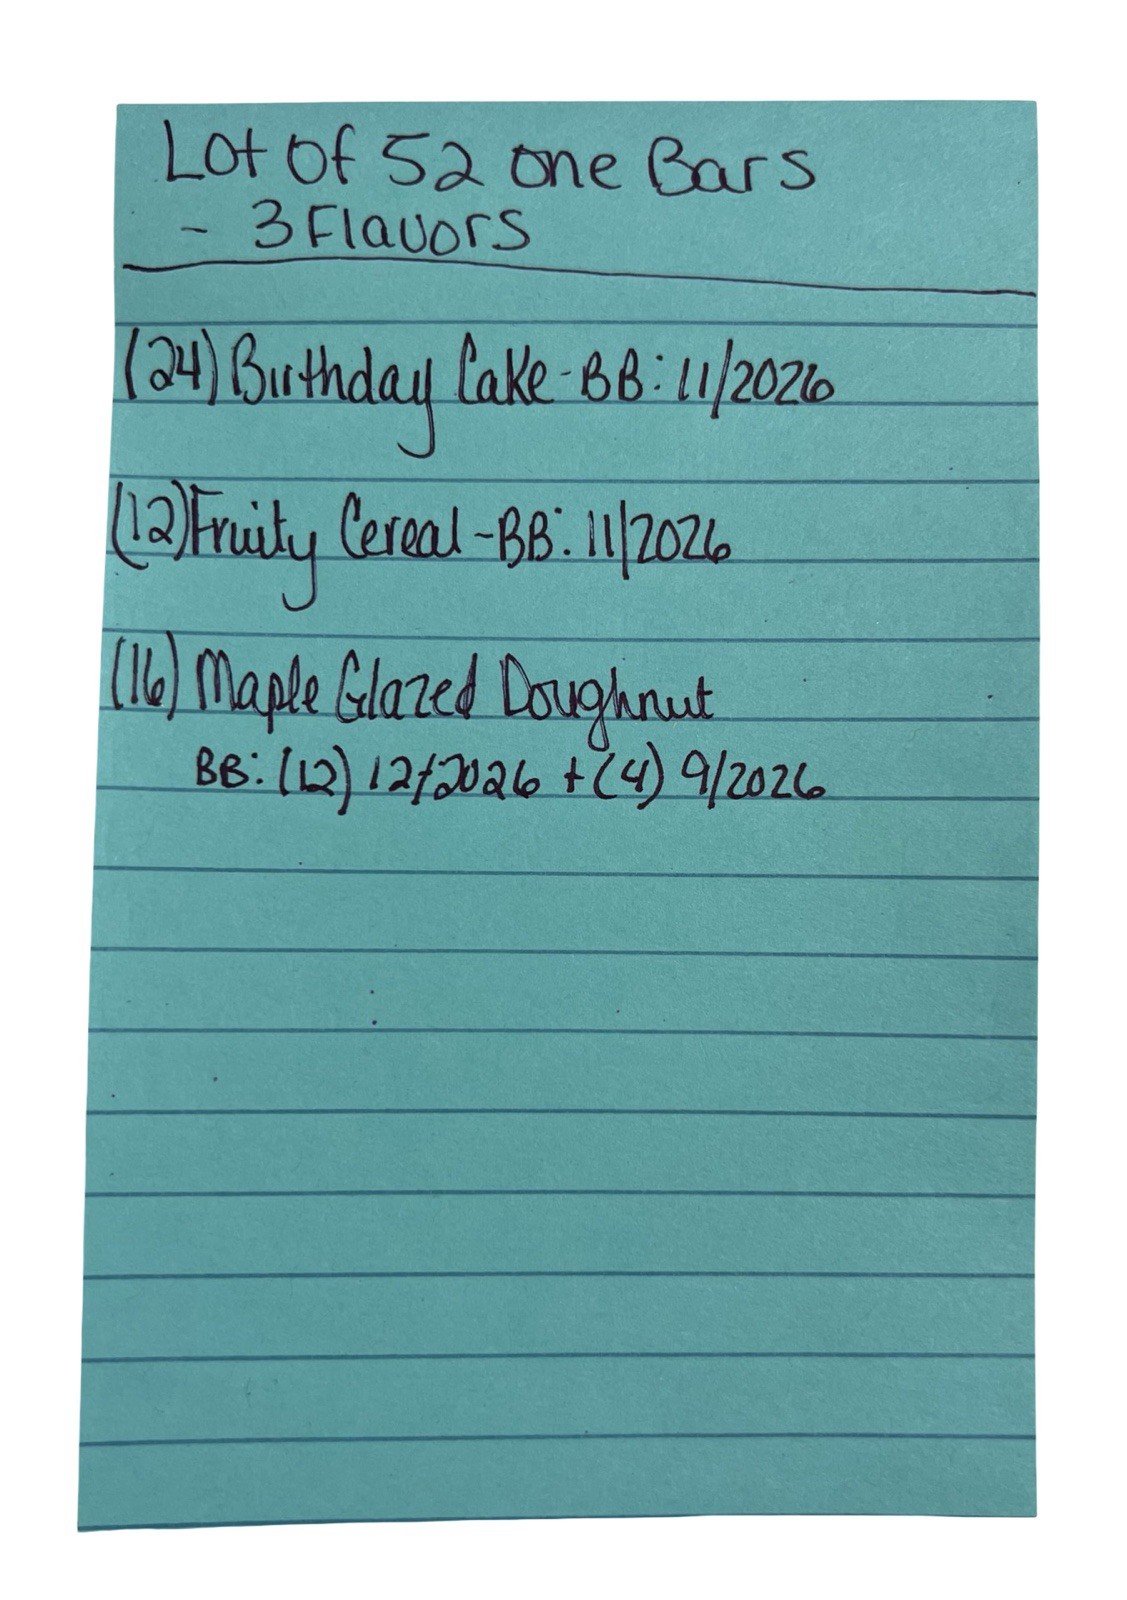 Lot Of 52 One Bars
- 3 Flavors
(24) Birthday Cake - BB: 11/2026
(12) Fruity Cereal - BB: 11/2026
(16) Maple Glazed Doughnut
BB: (12) 12/2026 + (4) 9/2026